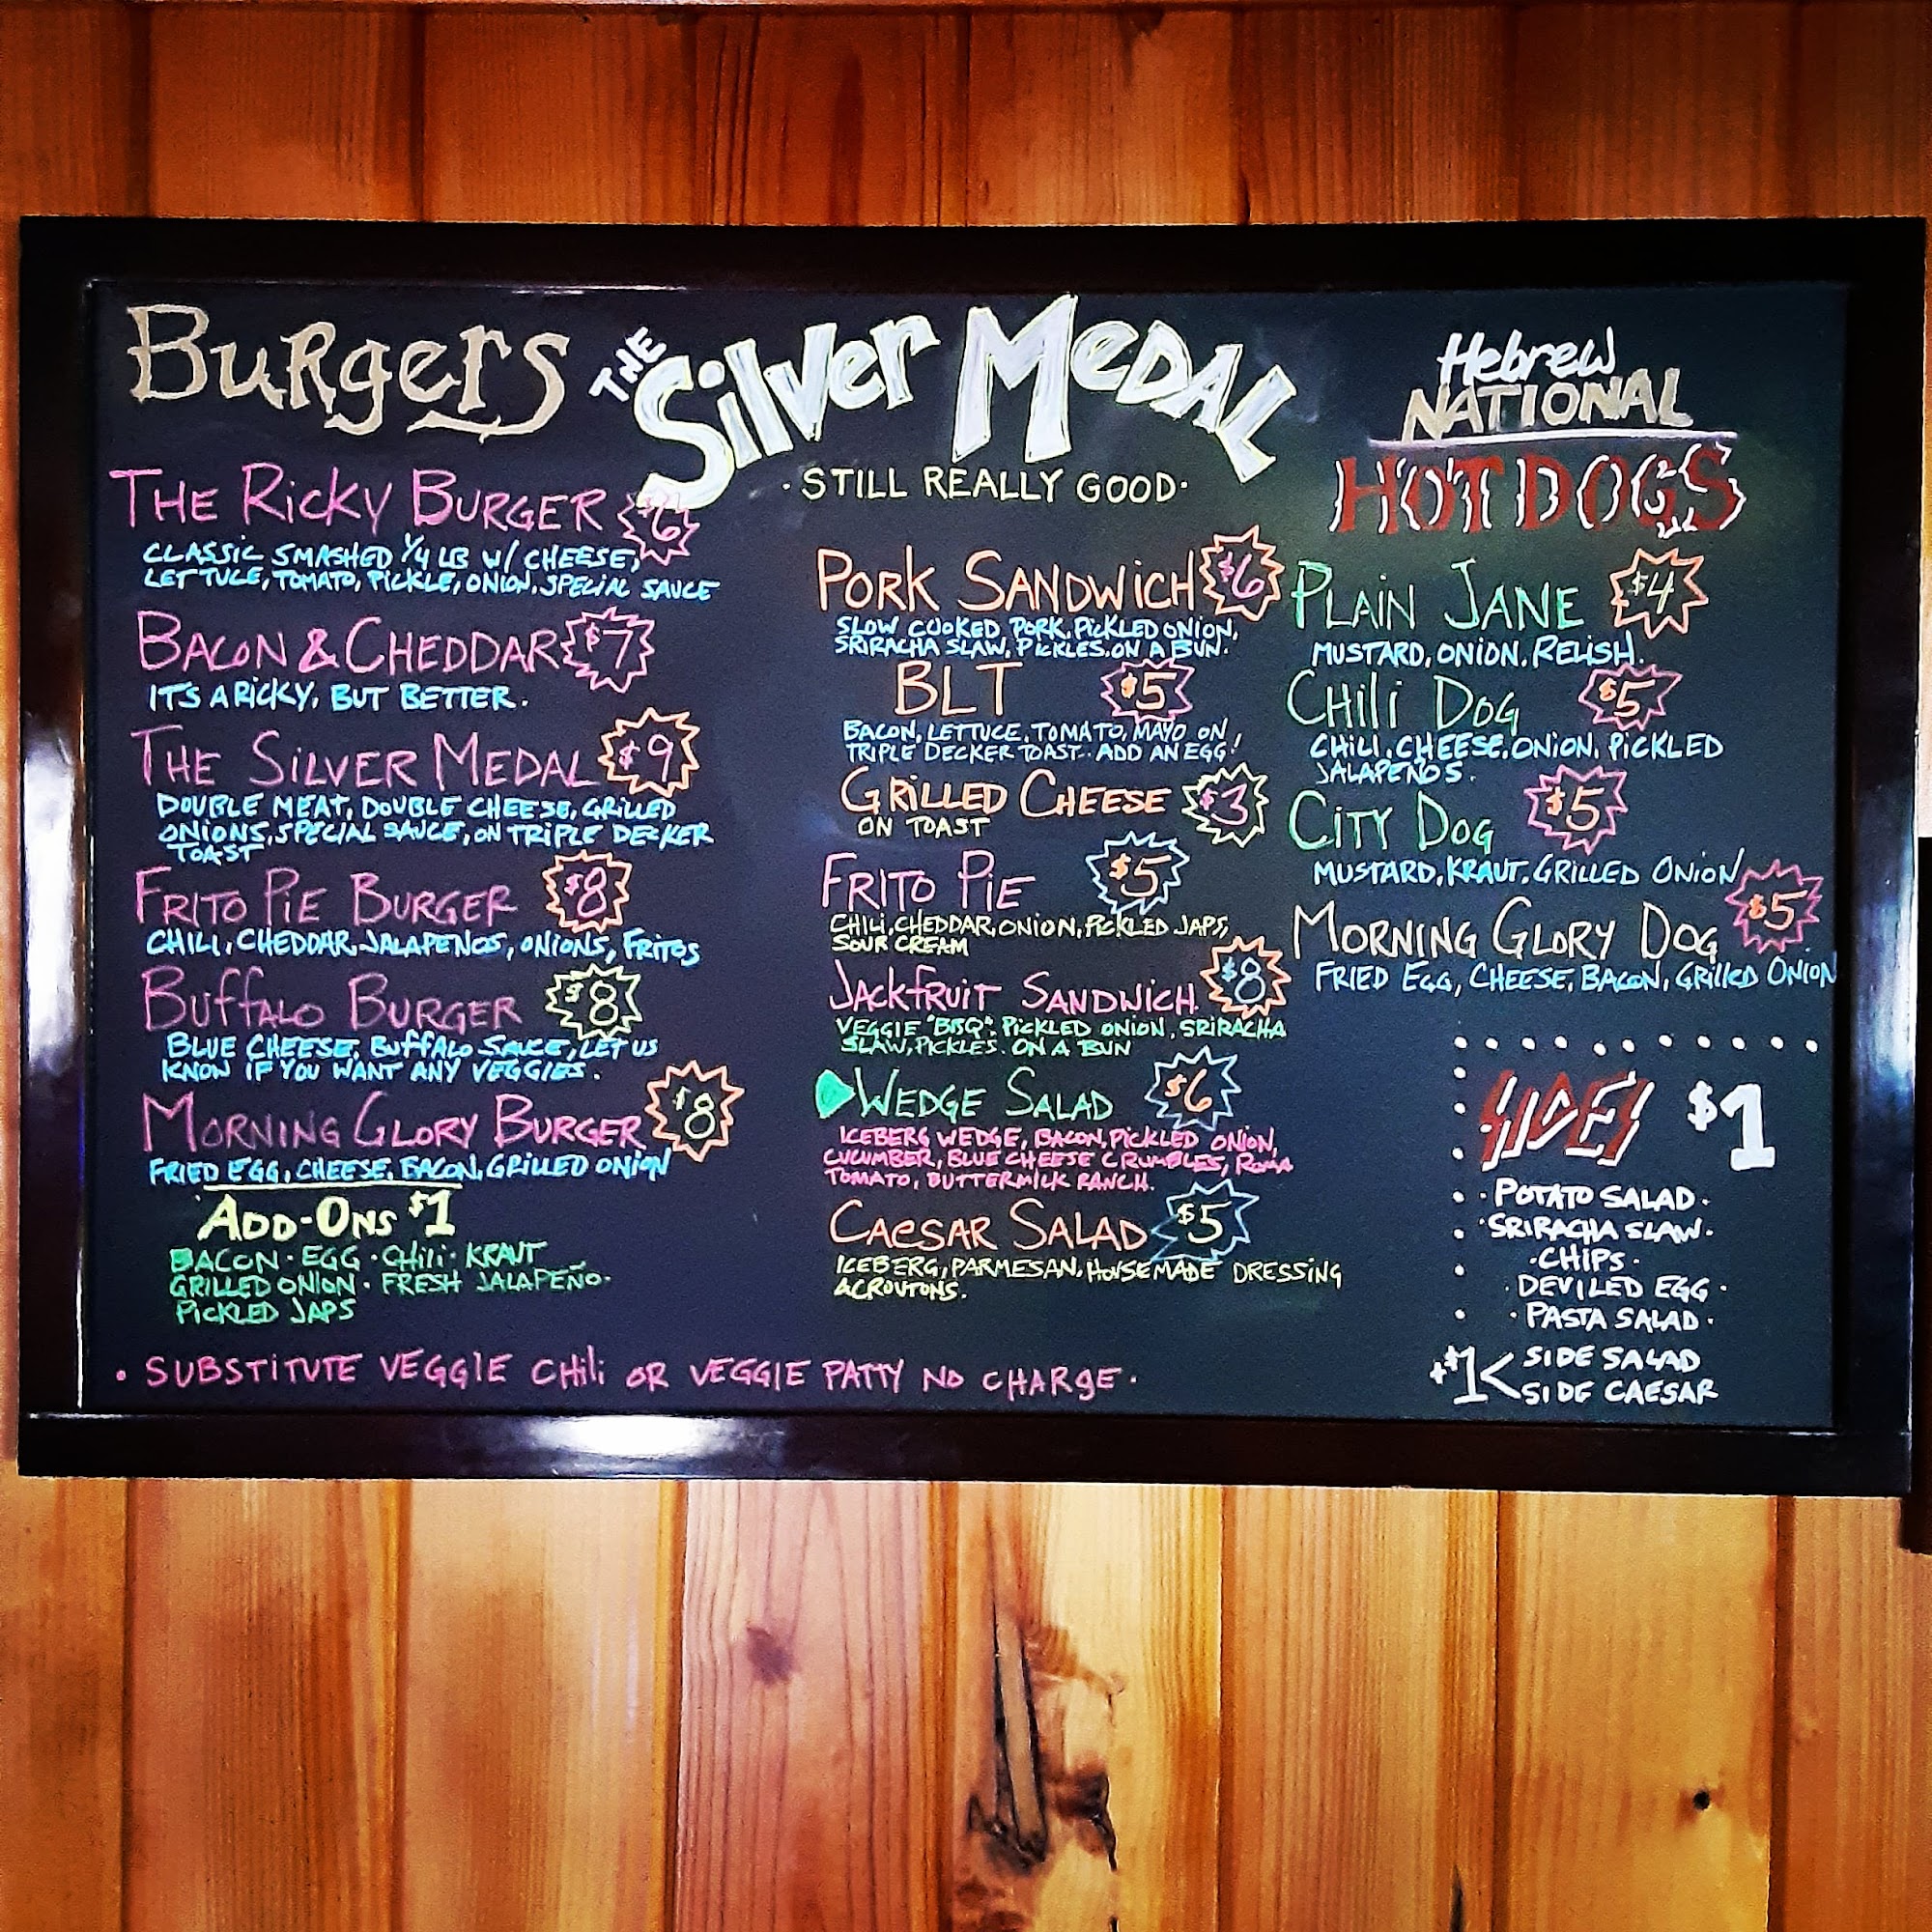 BURGERS
THE RICKY BURGER $6
CLASSIC SMASHED 1/4 LB W/ CHEESE,
LETTUCE, TOMATO, PICKLE, ONION, SPECIAL SAUCE
BACON & CHEDDAR $7
IT'S A RICKY, BUT BETTER.
THE SILVER MEDAL $9
DOUBLE MEAT, DOUBLE CHEESE, GRILLED
ONIONS, SPECIAL SAUCE, ON TRIPLE DECKER
TOAST
FRITO PIE BURGER $8
CHILI, CHEDDAR, JALAPENOS, ONIONS, FRITOS
BUFFALO BURGER $8
BLUE CHEESE, BUFFALO SAUCE, LET US
KNOW IF YOU WANT ANY VEGGIES.
MORNING GLORY BURGER $8
FRIED EGG, CHEESE, BACON, GRILLED ONION
ADD-ONS $1
BACON · EGG · CHILI · KRAUT
GRILLED ONION · FRESH JALAPEÑO ·
PICKLED JAPS
· SUBSTITUTE VEGGIE CHILI OR VEGGIE PATTY NO CHARGE ·
THE SILVER MEDAL
· STILL REALLY GOOD ·
PORK SANDWICH $6
SLOW COOKED PORK, PICKLED ONION,
SRIRACHA SLAW, PICKLES. ON A BUN.
BLT $5
BACON, LETTUCE, TOMATO, MAYO ON
TRIPLE DECKER TOAST.. ADD AN EGG!
GRILLED CHEESE $3
ON TOAST
FRITO PIE $5
CHILI, CHEDDAR, ONION, PICKLED JAPS,
SOUR CREAM
JACKFRUIT SANDWICH $8
VEGGIE "BBQ", PICKLED ONION, SRIRACHA
SLAW, PICKLES. ON A BUN
WEDGE SALAD $6
ICEBERG WEDGE, BACON, PICKLED ONION,
CUCUMBER, BLUE CHEESE CRUMBLES, ROMA
TOMATO, BUTTERMILK RANCH.
CAESAR SALAD $5
ICEBERG, PARMESAN, HOUSEMADE DRESSING
& CROUTONS.
Hebrew
NATIONAL
HOT DOGS
PLAIN JANE $4
MUSTARD, ONION, RELISH.
CHILI DOG $5
CHILI, CHEESE, ONION, PICKLED
JALAPEÑOS.
CITY DOG $5
MUSTARD, KRAUT, GRILLED ONION
MORNING GLORY DOG $5
FRIED EGG, CHEESE, BACON, GRILLED ONION
SIDES $1
· POTATO SALAD ·
· SRIRACHA SLAW ·
· CHIPS ·
· DEVILED EGG ·
· PASTA SALAD ·
+$1< SIDE SALAD
SIDE CAESAR